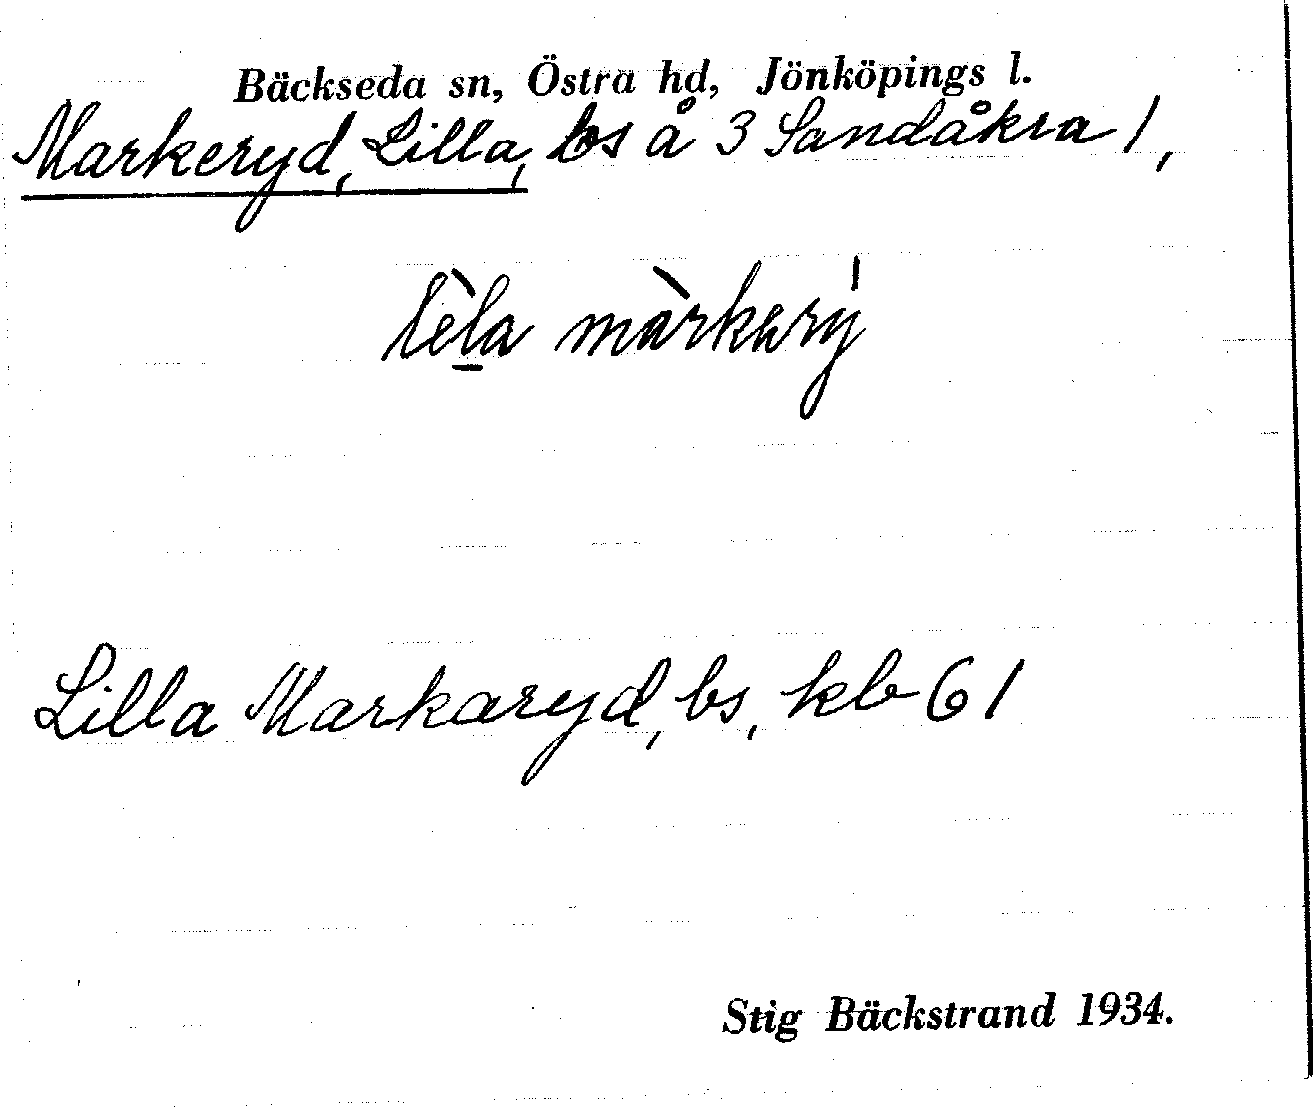 Bäckseda sn, Östra hd, Jönköpings l.
Markeryd, Lilla, bs å 3 Sandåkra 1,
lèla màrkarý
Lilla Markaryd, bs, kb 61
Stig Bäckstrand 1934.